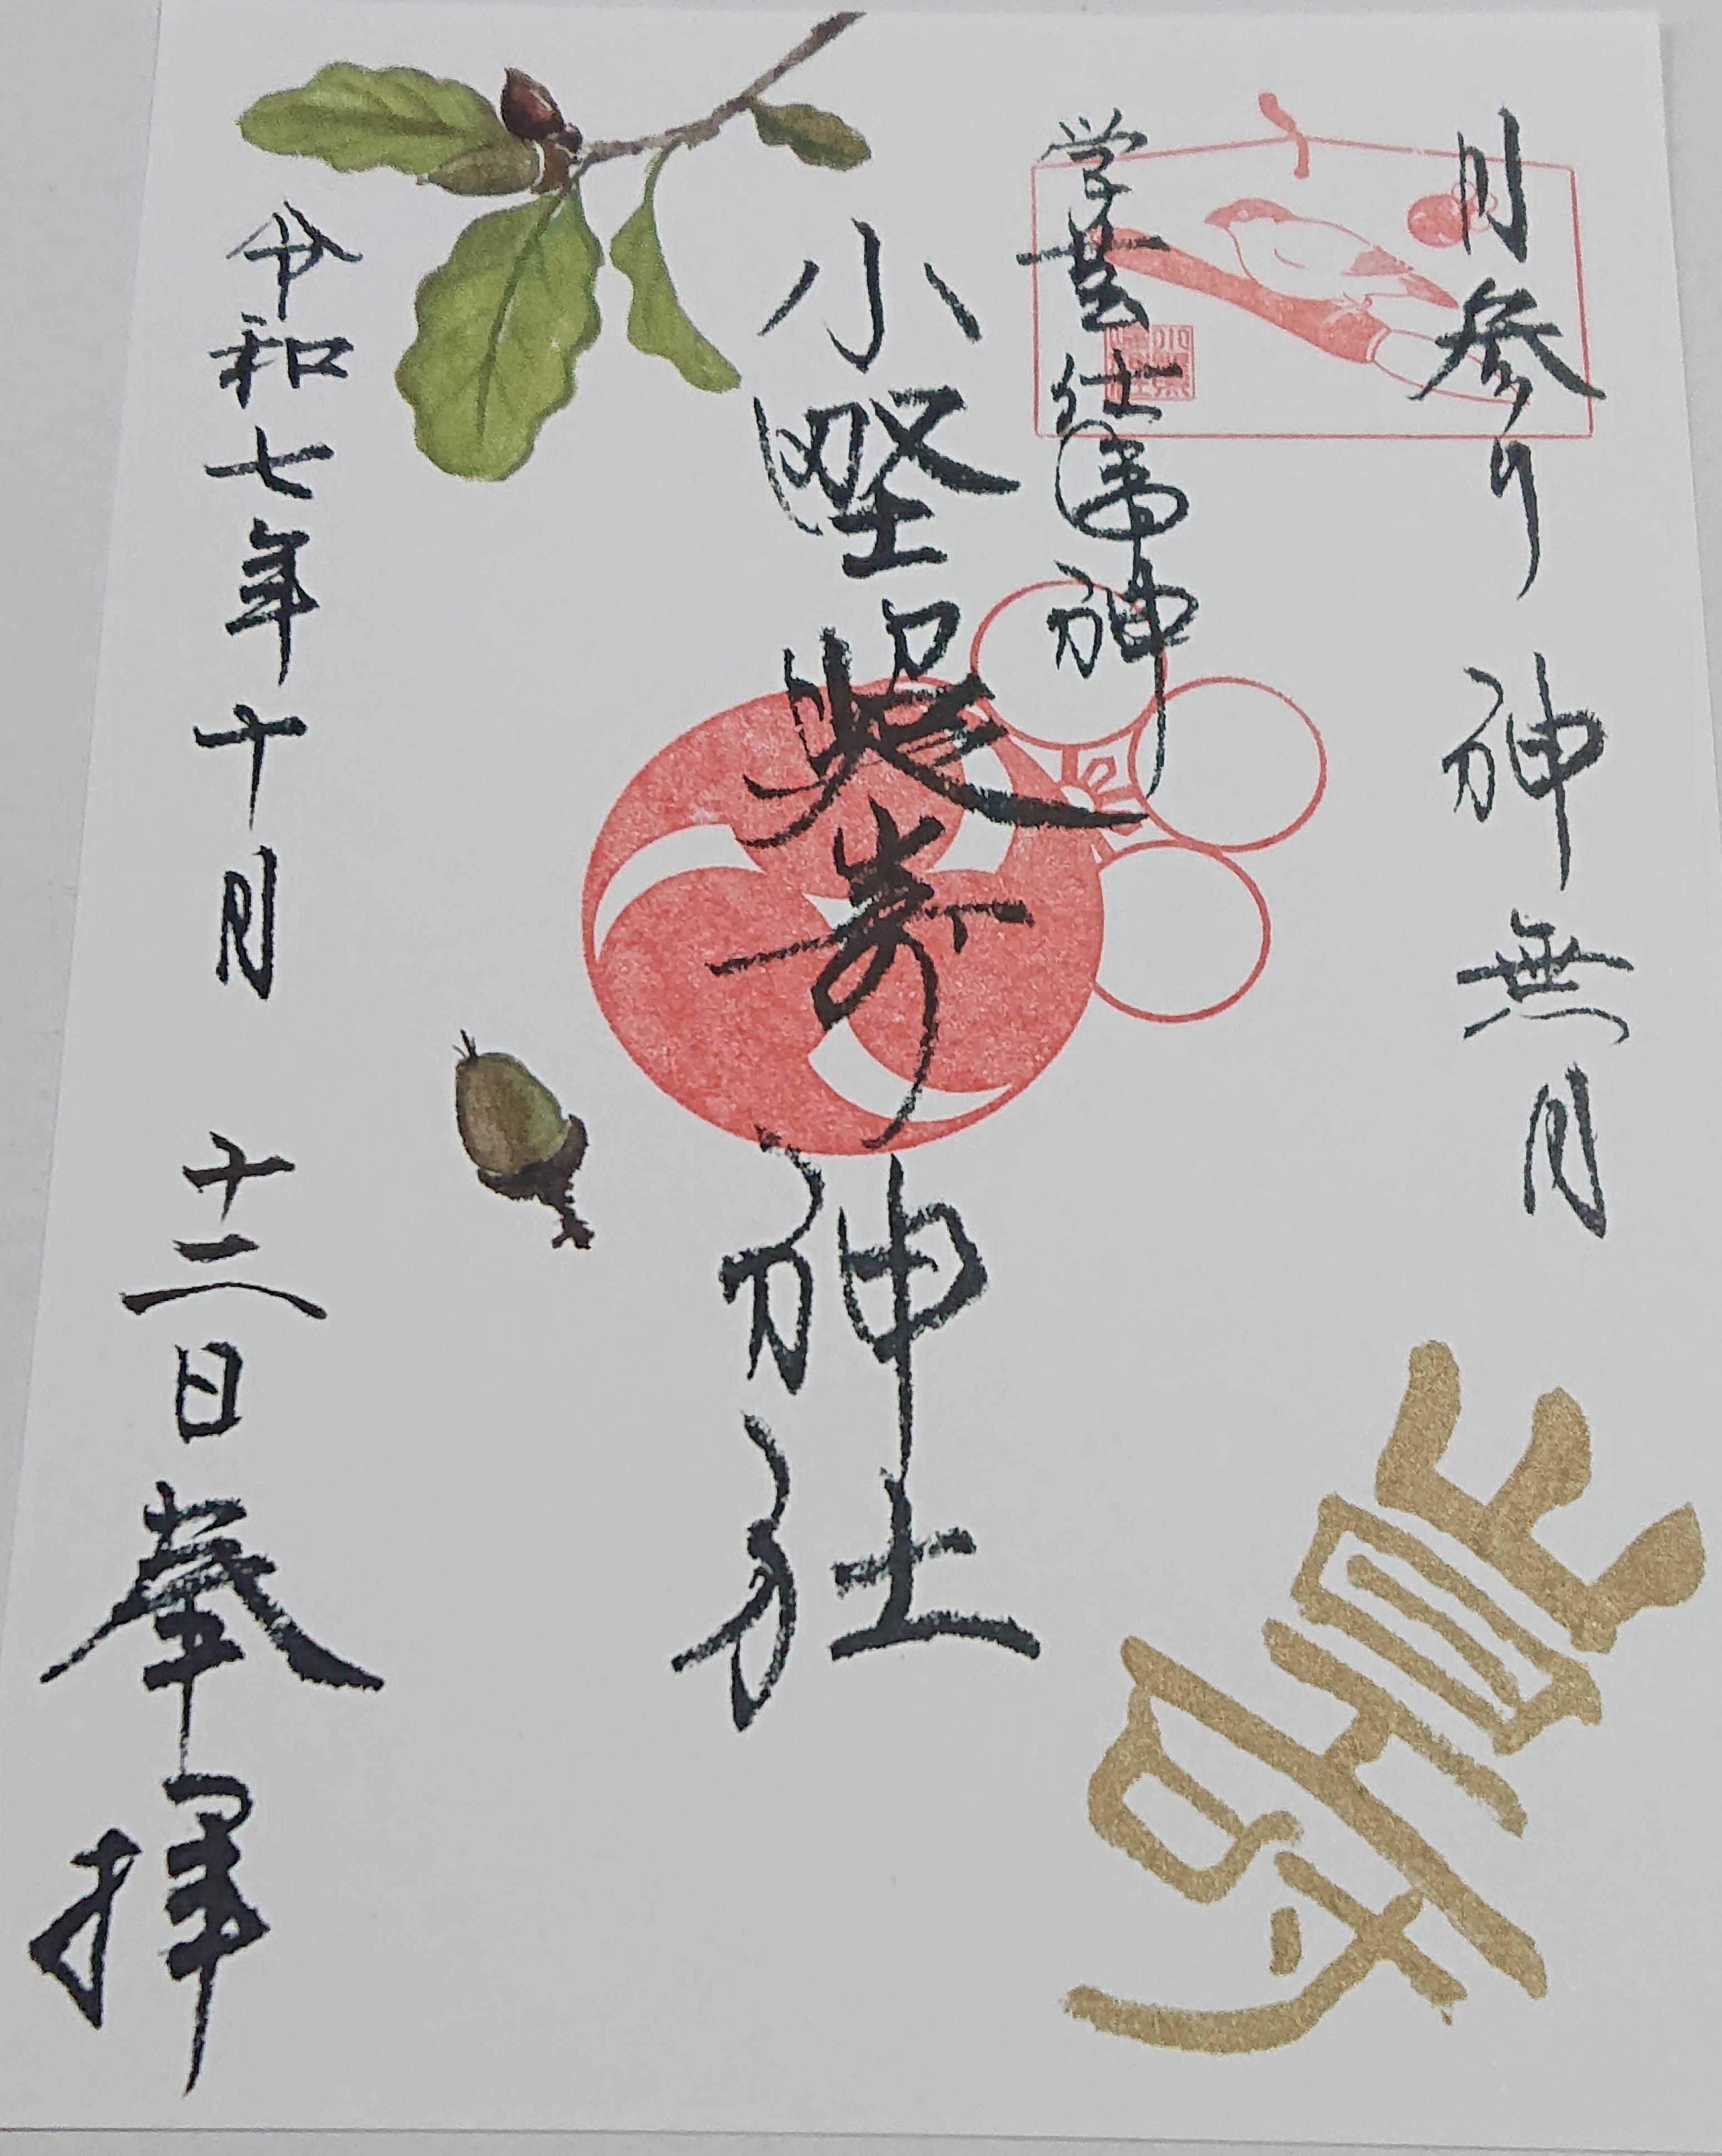 月参り 神無月
学芸仕事神
小野照崎神社
令和七年十月 十二日 奉拝